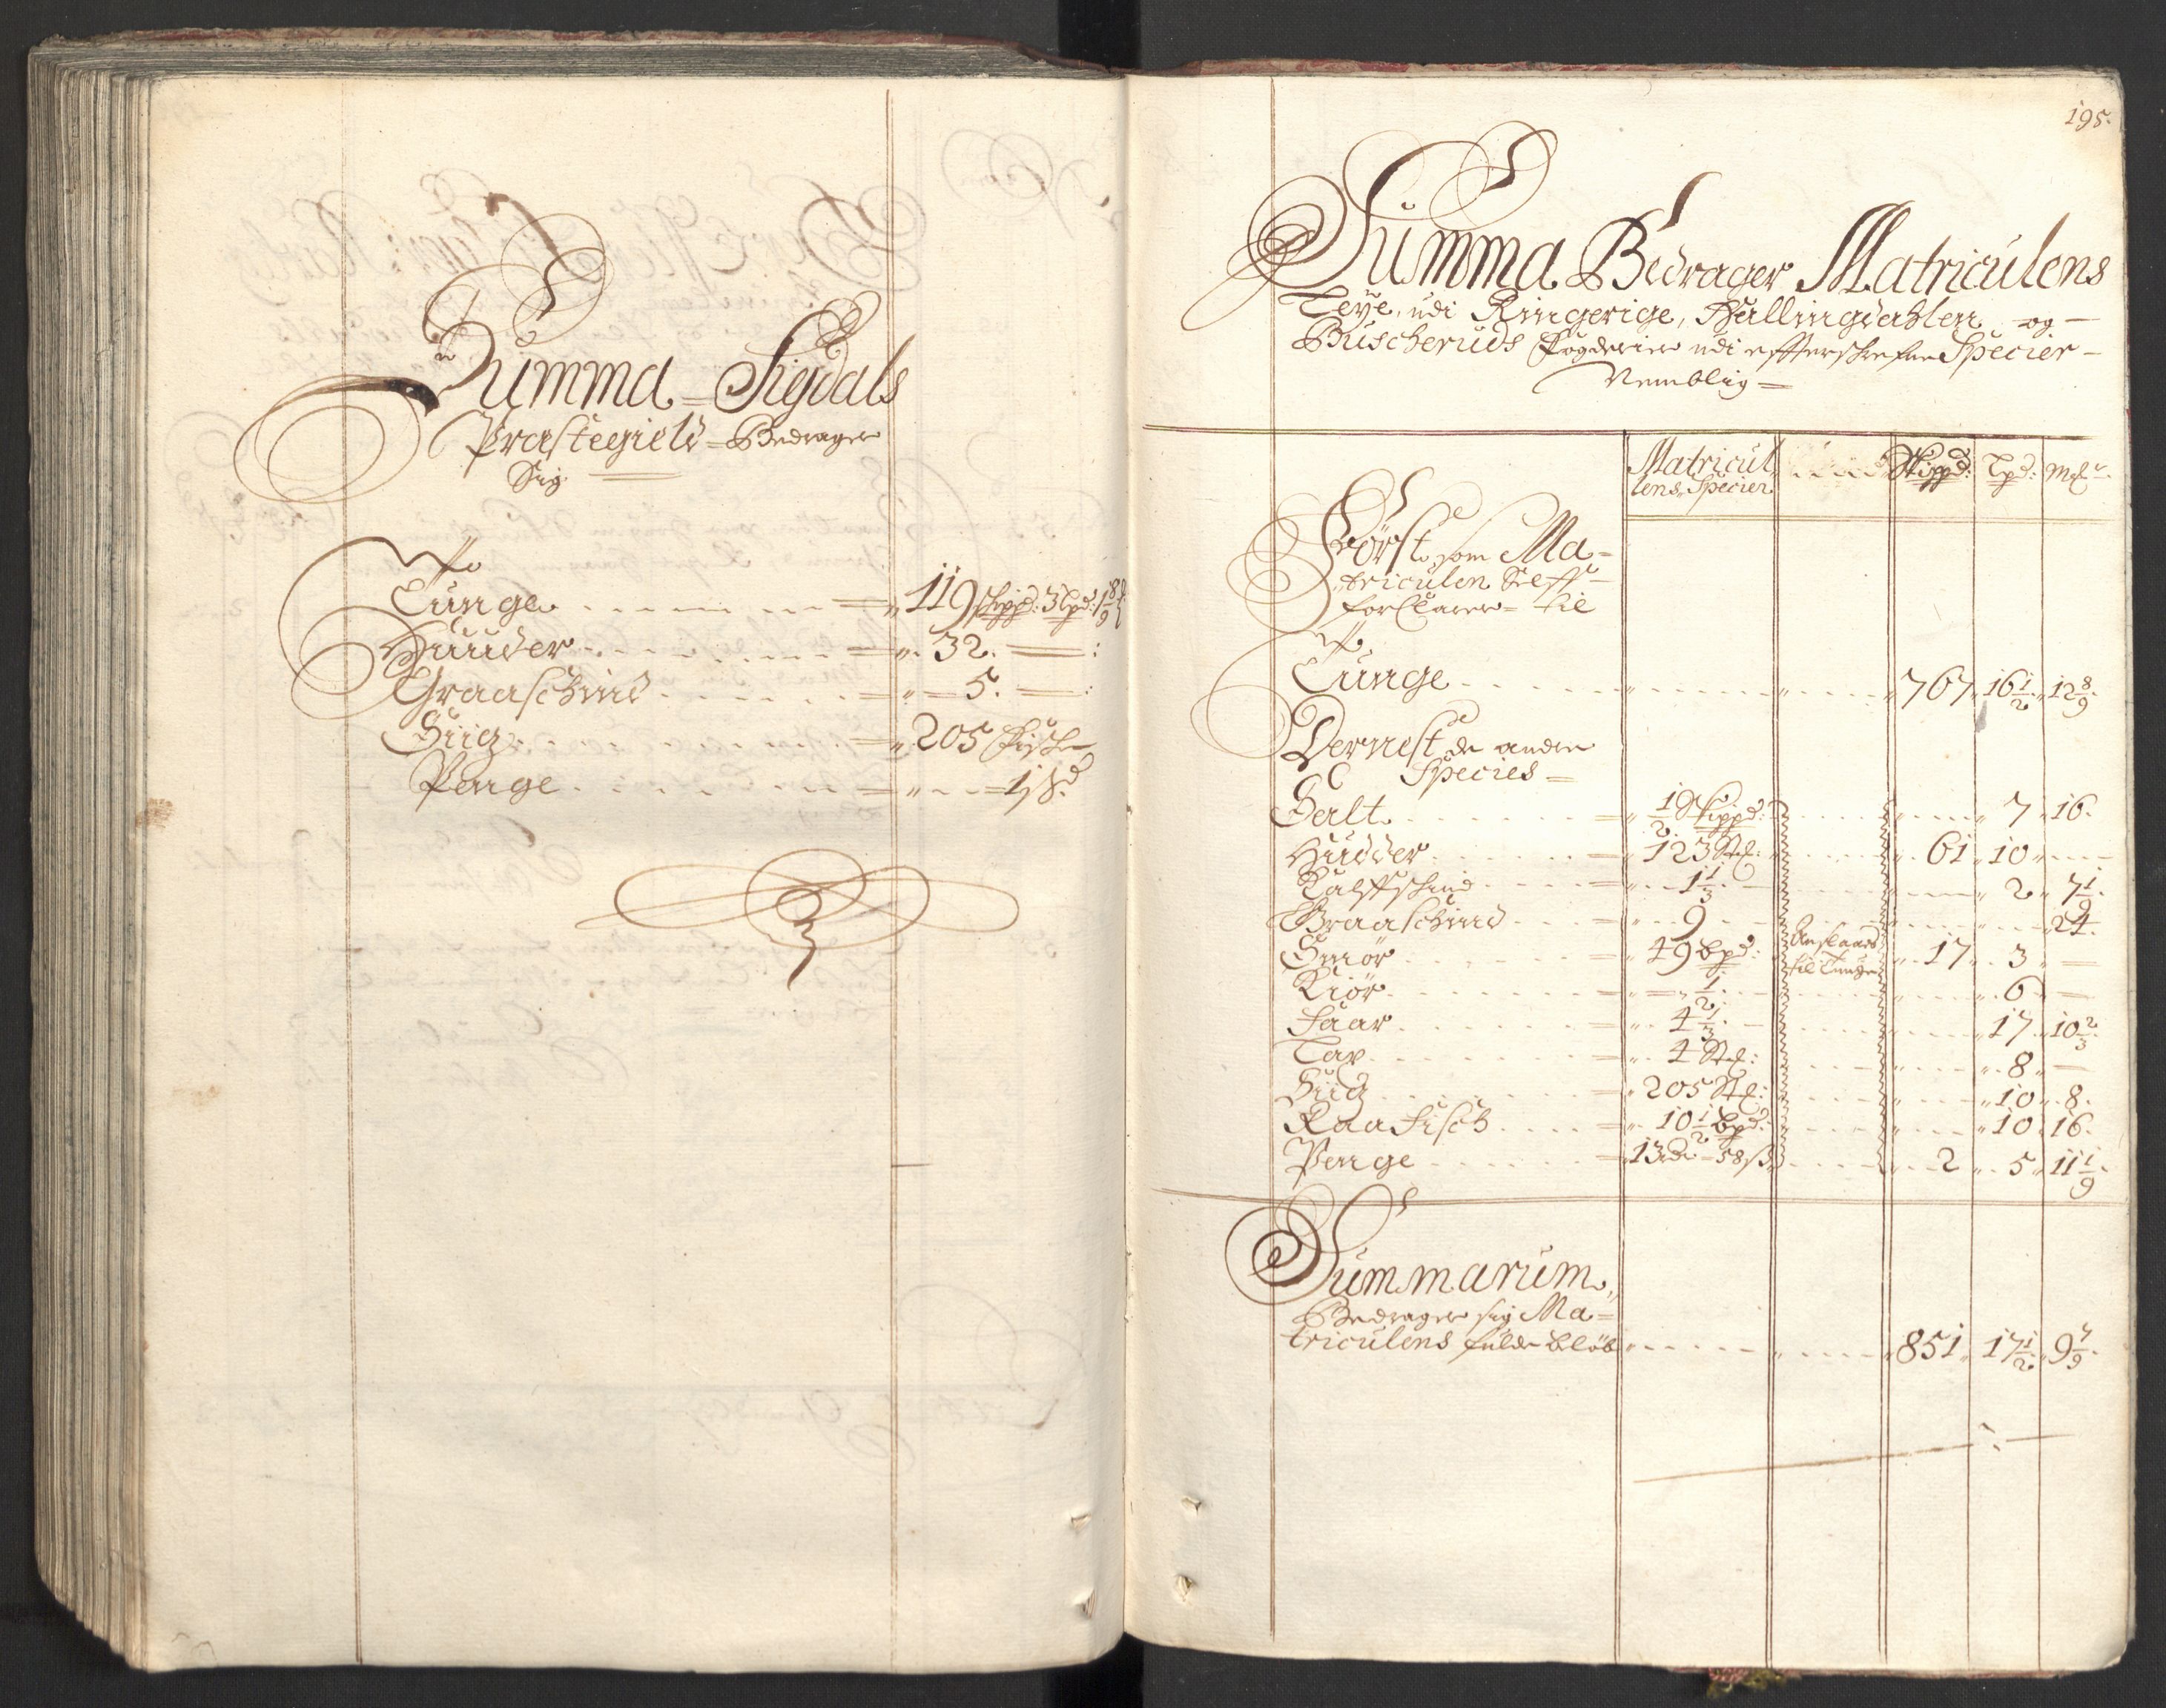 Summa Sigdals
Præstegield Bedrager
Sig.
Tunge 119 skippd: 3 Lpd: 1 8/9
Huuder 32.
Graaschind 5.
Siig 205 Fiske
Penge 1 β
195.
Summa Bedrager Matriculens
Leye, udi Ringerige, Hallingdahlen og
Buscheruds Fogderier udi effterschrefne Specier
Nemblig
Matricul
lens Specier Skippd: Lpd: Mk
Först, som Ma-
triculen Self
forClarer til
Tunge 767 16 1/2 12 8/9
Dernest de andre
Species
Salt 1/2 Skippd: 7 16.
Hudder 123 Stk: 61 10
Kalffschind 1 1/3 2 7 1/9
Graaschind 9 24.
Smör 49 bpd: Anslaaed 17 3
til tunge
Kiör 1/2 6
Faar 4 1/3 17 10 2/3
Lax 4 Stk: 8
Siig 205 Stk: 10 8.
Raa Fisch 10 1/2 bpd: 10 16.
Penge 13 Rdr 58 β 2 5 11 1/9
Summarum,
Bedrager sig Ma-
triculens fulde belöb 851 17 1/2 9 7/9